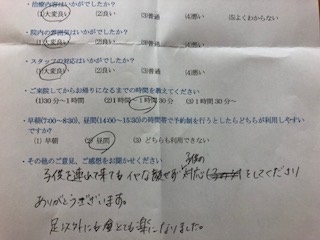 ・治療内容はいかがでしたか?
(1)大変良い (2)良い (3)普通 (4)悪い (5)よくわからない
・院内の雰囲気はいかがでしたか?
(1)大変良い (2)良い (3)普通 (4)悪い
・スタッフの対応はいかがでしたか?
(1)大変良い (2)良い (3)普通 (4)悪い
・ご来院してからお帰りになるまでの時間を教えてください
(1)30分～1時間 (2)1時間～1時間30分 (3)1時間30分～
・早朝(7:00～8:30)、昼間(14:00～15:30)の時間帯で予約制を行うとしたらどちらが利用しやすい
ですか?
(1) 早朝 (2) 昼間 (3) どちらも利用できない
・その他のご意見、ご感想をお聞かせください
子供の
子供を連れて来てもイヤな顔せず対応をしてくださり
ありがとうございます。
足以外にも肩とても楽になりました。